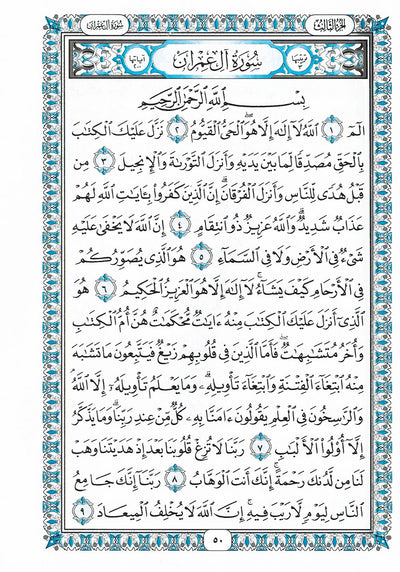 الجزء الثالث سورة آل عمران
ترتيبها سورة آل عمران آياتها
بسم الله الرحمن الرحيم
الٓمٓ ١ ٱللَّهُ لَآ إِلَٰهَ إِلَّا هُوَ ٱلْحَىُّ ٱلْقَيُّومُ ٢ نَزَّلَ عَلَيْكَ ٱلْكِتَٰبَ
بِٱلْحَقِّ مُصَدِّقًا لِّمَا بَيْنَ يَدَيْهِ وَأَنزَلَ ٱلتَّوْرَىٰةَ وَٱلْإِنجِيلَ ٣ مِن
قَبْلُ هُدًى لِّلنَّاسِ وَأَنزَلَ ٱلْفُرْقَانَ ۗ إِنَّ ٱلَّذِينَ كَفَرُوا۟ بِـَٔايَٰتِ ٱللَّهِ لَهُمْ
عَذَابٌ شَدِيدٌ ۗ وَٱللَّهُ عَزِيزٌ ذُو ٱنتِقَامٍ ٤ إِنَّ ٱللَّهَ لَا يَخْفَىٰ عَلَيْهِ
شَىْءٌ فِى ٱلْأَرْضِ وَلَا فِى ٱلسَّمَآءِ ٥ هُوَ ٱلَّذِى يُصَوِّرُكُمْ
فِى ٱلْأَرْحَامِ كَيْفَ يَشَآءُ ۚ لَآ إِلَٰهَ إِلَّا هُوَ ٱلْعَزِيزُ ٱلْحَكِيمُ ٦ هُوَ
ٱلَّذِىٓ أَنزَلَ عَلَيْكَ ٱلْكِتَٰبَ مِنْهُ ءَايَٰتٌ مُّحْكَمَٰتٌ هُنَّ أُمُّ ٱلْكِتَٰبِ
وَأُخَرُ مُتَشَٰبِهَٰتٌ ۖ فَأَمَّا ٱلَّذِينَ فِى قُلُوبِهِمْ زَيْغٌ فَيَتَّبِعُونَ مَا تَشَٰبَهَ
مِنْهُ ٱبْتِغَآءَ ٱلْفِتْنَةِ وَٱبْتِغَآءَ تَأْوِيلِهِۦ ۗ وَمَا يَعْلَمُ تَأْوِيلَهُۥٓ إِلَّا ٱللَّهُ ۗ
وَٱلرَّٰسِخُونَ فِى ٱلْعِلْمِ يَقُولُونَ ءَامَنَّا بِهِۦ كُلٌّ مِّنْ عِندِ رَبِّنَا ۗ وَمَا يَذَّكَّرُ
إِلَّآ أُو۟لُوا۟ ٱلْأَلْبَٰبِ ٧ رَبَّنَا لَا تُزِغْ قُلُوبَنَا بَعْدَ إِذْ هَدَيْتَنَا وَهَبْ
لَنَا مِن لَّدُنكَ رَحْمَةً ۚ إِنَّكَ أَنتَ ٱلْوَهَّابُ ٨ رَبَّنَآ إِنَّكَ جَامِعُ
ٱلنَّاسِ لِيَوْمٍ لَّا رَيْبَ فِيهِ ۚ إِنَّ ٱللَّهَ لَا يُخْلِفُ ٱلْمِيعَادَ ٩
٥٠